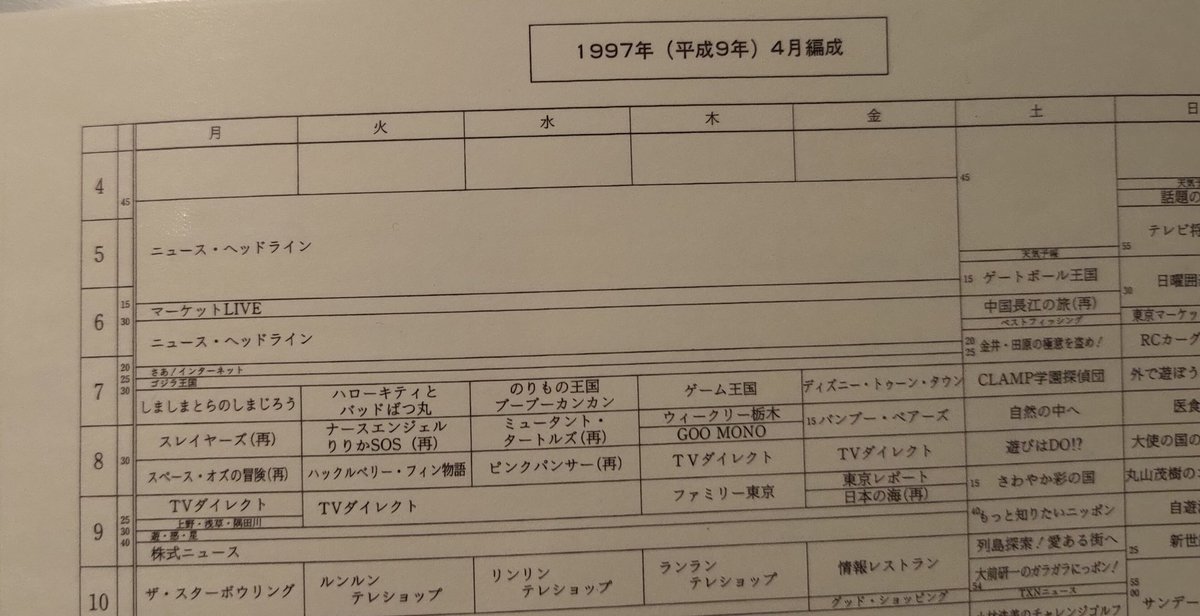 1997年（平成9年）4月編成
月 火 水 木 金 土 日
4
45
45
天気予
話題の
5
ニュース・ヘッドライン
テレビ将
55
天気予報
15 ゲートボール王国
日曜囲
30
6
15
30
マーケットLIVE
中国長江の旅(再)
ベストフィッシング
東京マーケッ
ニュース・ヘッドライン
20
25
金井・田原の極意を盗め！
RCカーグ
7
20
25
30
さあ！インターネット
ゴジラ王国
しましまとらのしまじろう
ハローキティと
バッドばつ丸
のりもの王国
ブーブーカンカン
ゲーム王国
ディズニー・トゥーン・タウン
CLAMP学園探偵団
外で遊ぼう
ナースエンジェル
りりかSOS（再）
ミュータント・
タートルズ(再)
ウィークリー栃木
GOO MONO
15 バンブー・ベアーズ
自然の中へ
医食
8
30
スレイヤーズ(再)
スペース・オズの冒険(再)
ハックルベリー・フィン物語
ピンクパンサー(再)
TVダイレクト
TVダイレクト
遊びはDO!?
大使の国の
東京レポート
日本の海(再)
15 さわやか彩の国
丸山茂樹の
9
25
30
40
TVダイレクト
上野・浅草・隅田川
TVダイレクト
ファミリー東京
遊・惑・星
株式ニュース
40 もっと知りたいニッポン
自遊
列島探索！愛ある街へ
25
新世
10
ザ・スターボウリング
ルンルン
テレショップ
リンリン
テレショップ
ランラン
テレショップ
情報レストラン
グッド・ショッピング
大前研一のガラガラにっポン！
54
TXNニュース
チャレンジゴルフ
55
00
サンデー